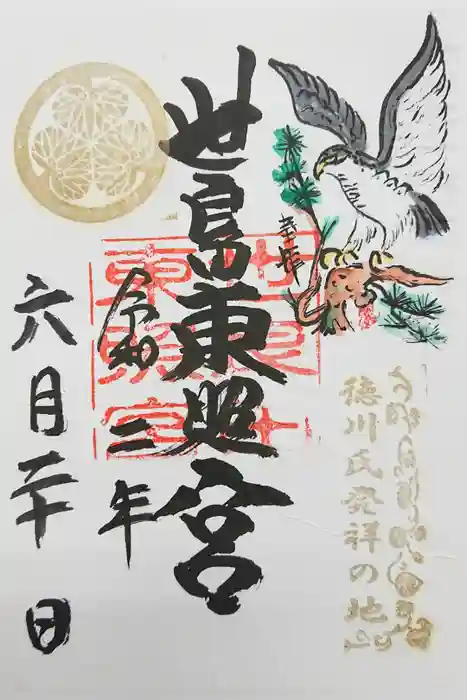 徳川氏発祥の地
世良田東照宮
令和二年
六月二十日